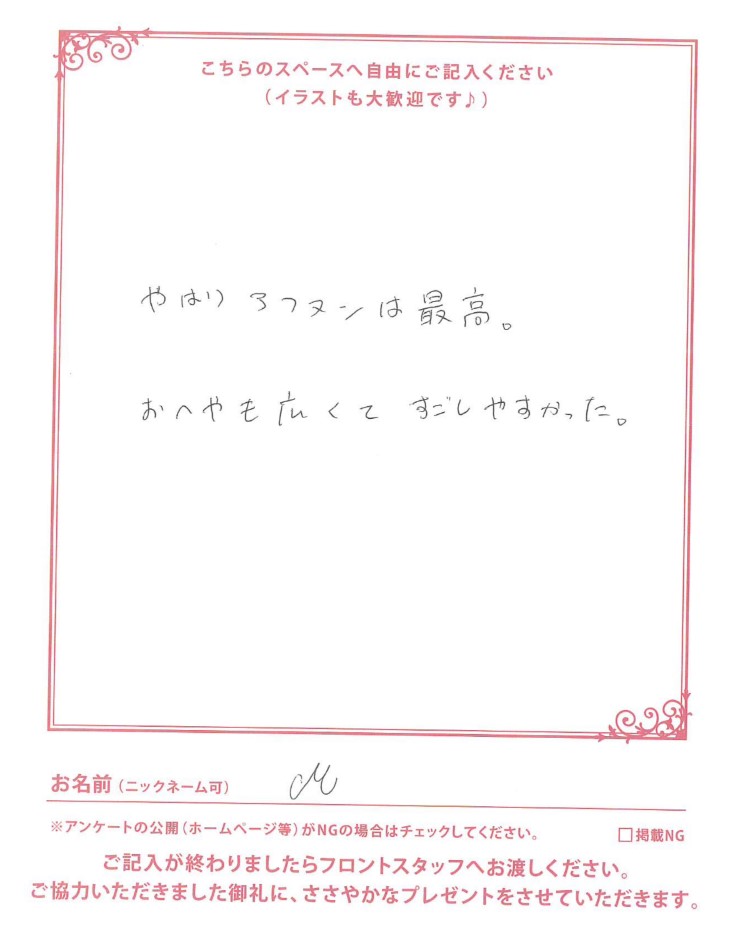 こちらのスペースへ自由にご記入ください
(イラストも大歓迎です♪)
やはりアフヌンは最高。
おへやも広くて すごしやすかった。
お名前(ニックネーム可) M
※アンケートの公開(ホームページ等)がNGの場合はチェックしてください。 □掲載NG
ご記入が終わりましたらフロントスタッフへお渡しください。
ご協力いただきました御礼に、ささやかなプレゼントをさせていただきます。